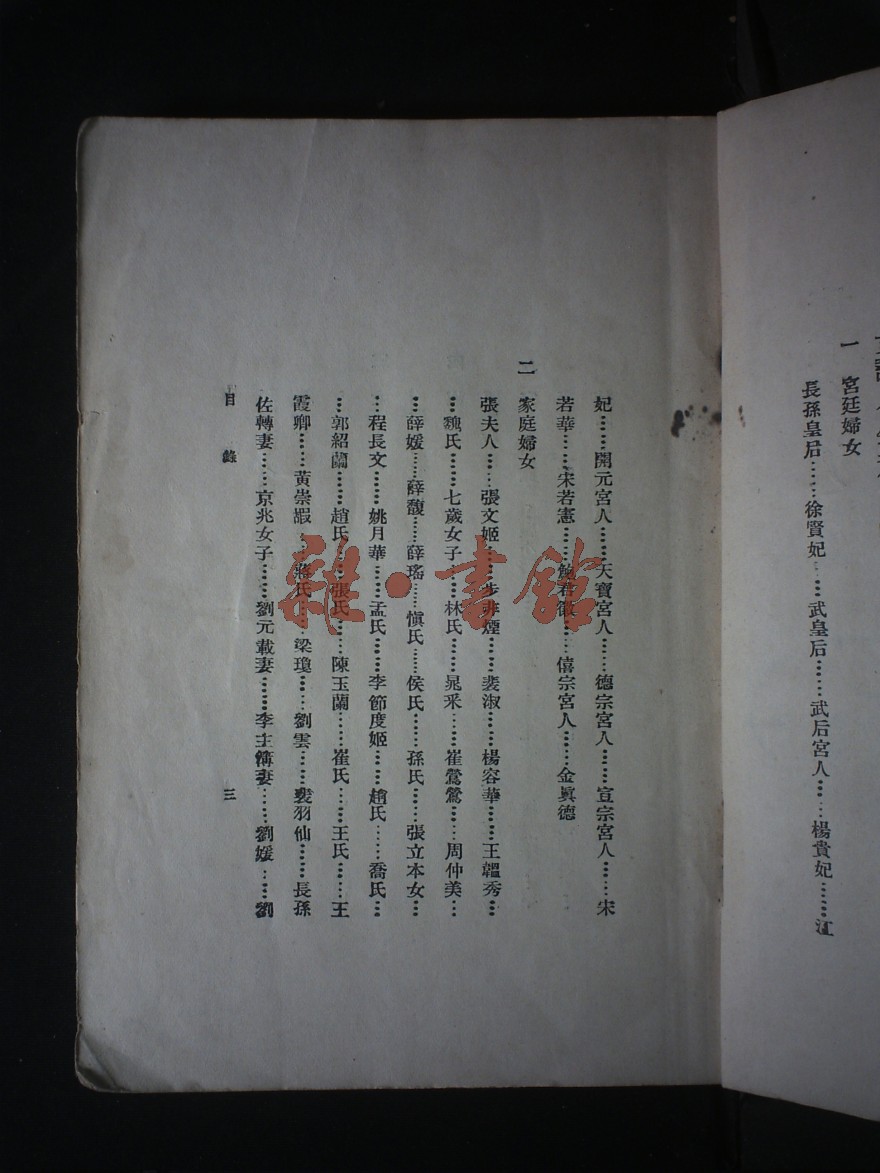 一　宮廷婦女
長孫皇后……徐賢妃……武皇后……武后宮人……楊貴妃……江
妃……開元宮人……天寶宮人……德宗宮人……宣宗宮人……宋
若華……宋若憲……鮑君徽……僖宗宮人……金眞德
二　家庭婦女
張夫人……張文姬……步非煙……裴淑……楊容華……王韞秀…
…魏氏……七歲女子……林氏……晁采……崔鶯鶯……周仲美…
…薛媛……薛馥……薛瑤……愼氏……侯氏……孫氏……張立本女…
…程長文……姚月華……孟氏……李節度姬……趙氏……喬氏…
…郭紹蘭……趙氏……張氏……陳玉蘭……崔氏……王氏……王
霞卿……黃崇嘏……蔣氏……梁瓊……劉雲……裴羽仙……長孫
佐轉妻……京兆女子……劉元載妻……李主簿妻……劉媛……劉
目錄
三
雜·書館